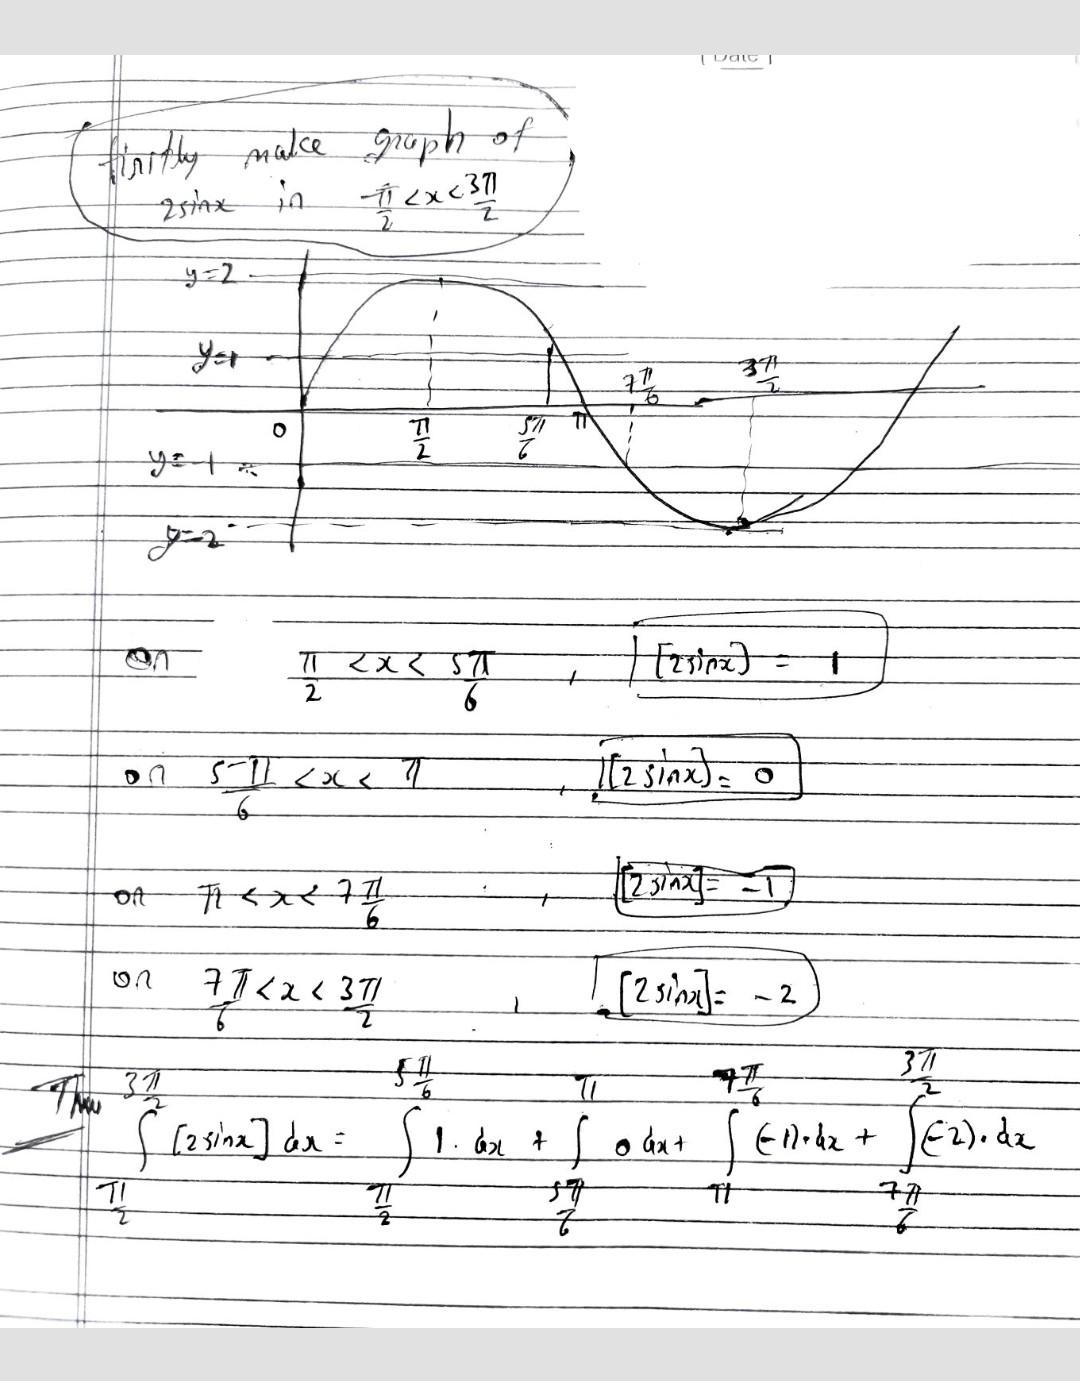 Date
firstly make graph of
2sinx in -π/2 < x < 3π/2
y=2
y=1
7π/6 3π/2
0 π/2 5π/6 π
y=-1
y=-2
on π/2 < x < 5π/6 , [2sinx] = 1
on 5π/6 < x < π , [2sinx] = 0
on π < x < 7π/6 , [2sinx] = -1
on 7π/6 < x < 3π/2 , [2sinx] = -2
∫_{π/2}^{3π/2} [2sinx] dx = ∫_{π/2}^{5π/6} 1. dx + ∫_{5π/6}^{π} 0 dx + ∫_{π}^{7π/6} (-1).dx + ∫_{7π/6}^{3π/2} (-2).dx